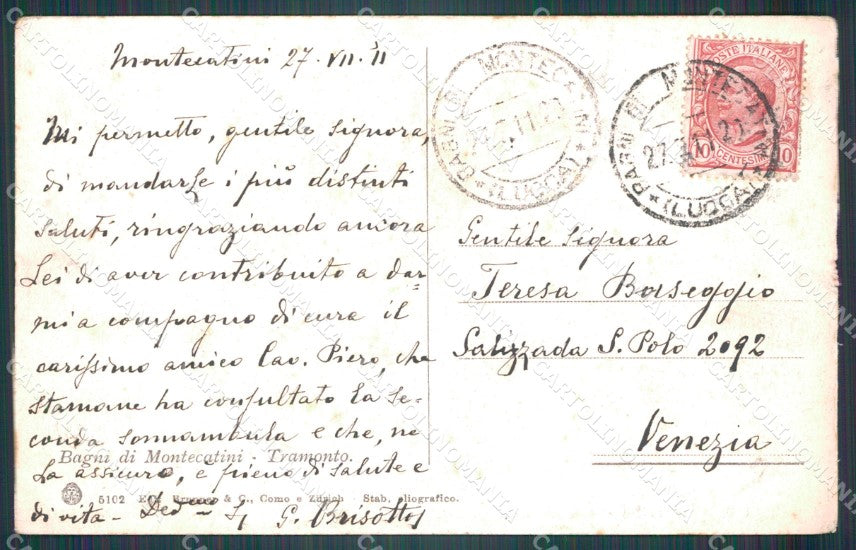 Montecatini 27·VII·11
Mi permetto, gentile Signora,
di mandarLe i più distinti
saluti, ringraziando ancora
Lei di aver contribuito a dar-
mi a compagno di cura il
carissimo amico Cav. Piero, che
stamane ha consultato la se-
conda sonnambula e che, ne
La assicuro, è pieno di salute e
di vita - Ded.mo
G. Brisotto
Bagni di Montecatini - Tramonto.
5102 & C., Como e Zürich - Stab. eliografico.
BAGNI DI MONTECATINI
(LUCCA)
BAGNI DI MONTECATINI
27. 11. 20
(LUCCA)
POSTE ITALIANE
10 CENTESIMI 10
Gentile Signora
Teresa Baseggio
Salizzada S. Polo 2092
Venezia
CARTOLINOMANIA